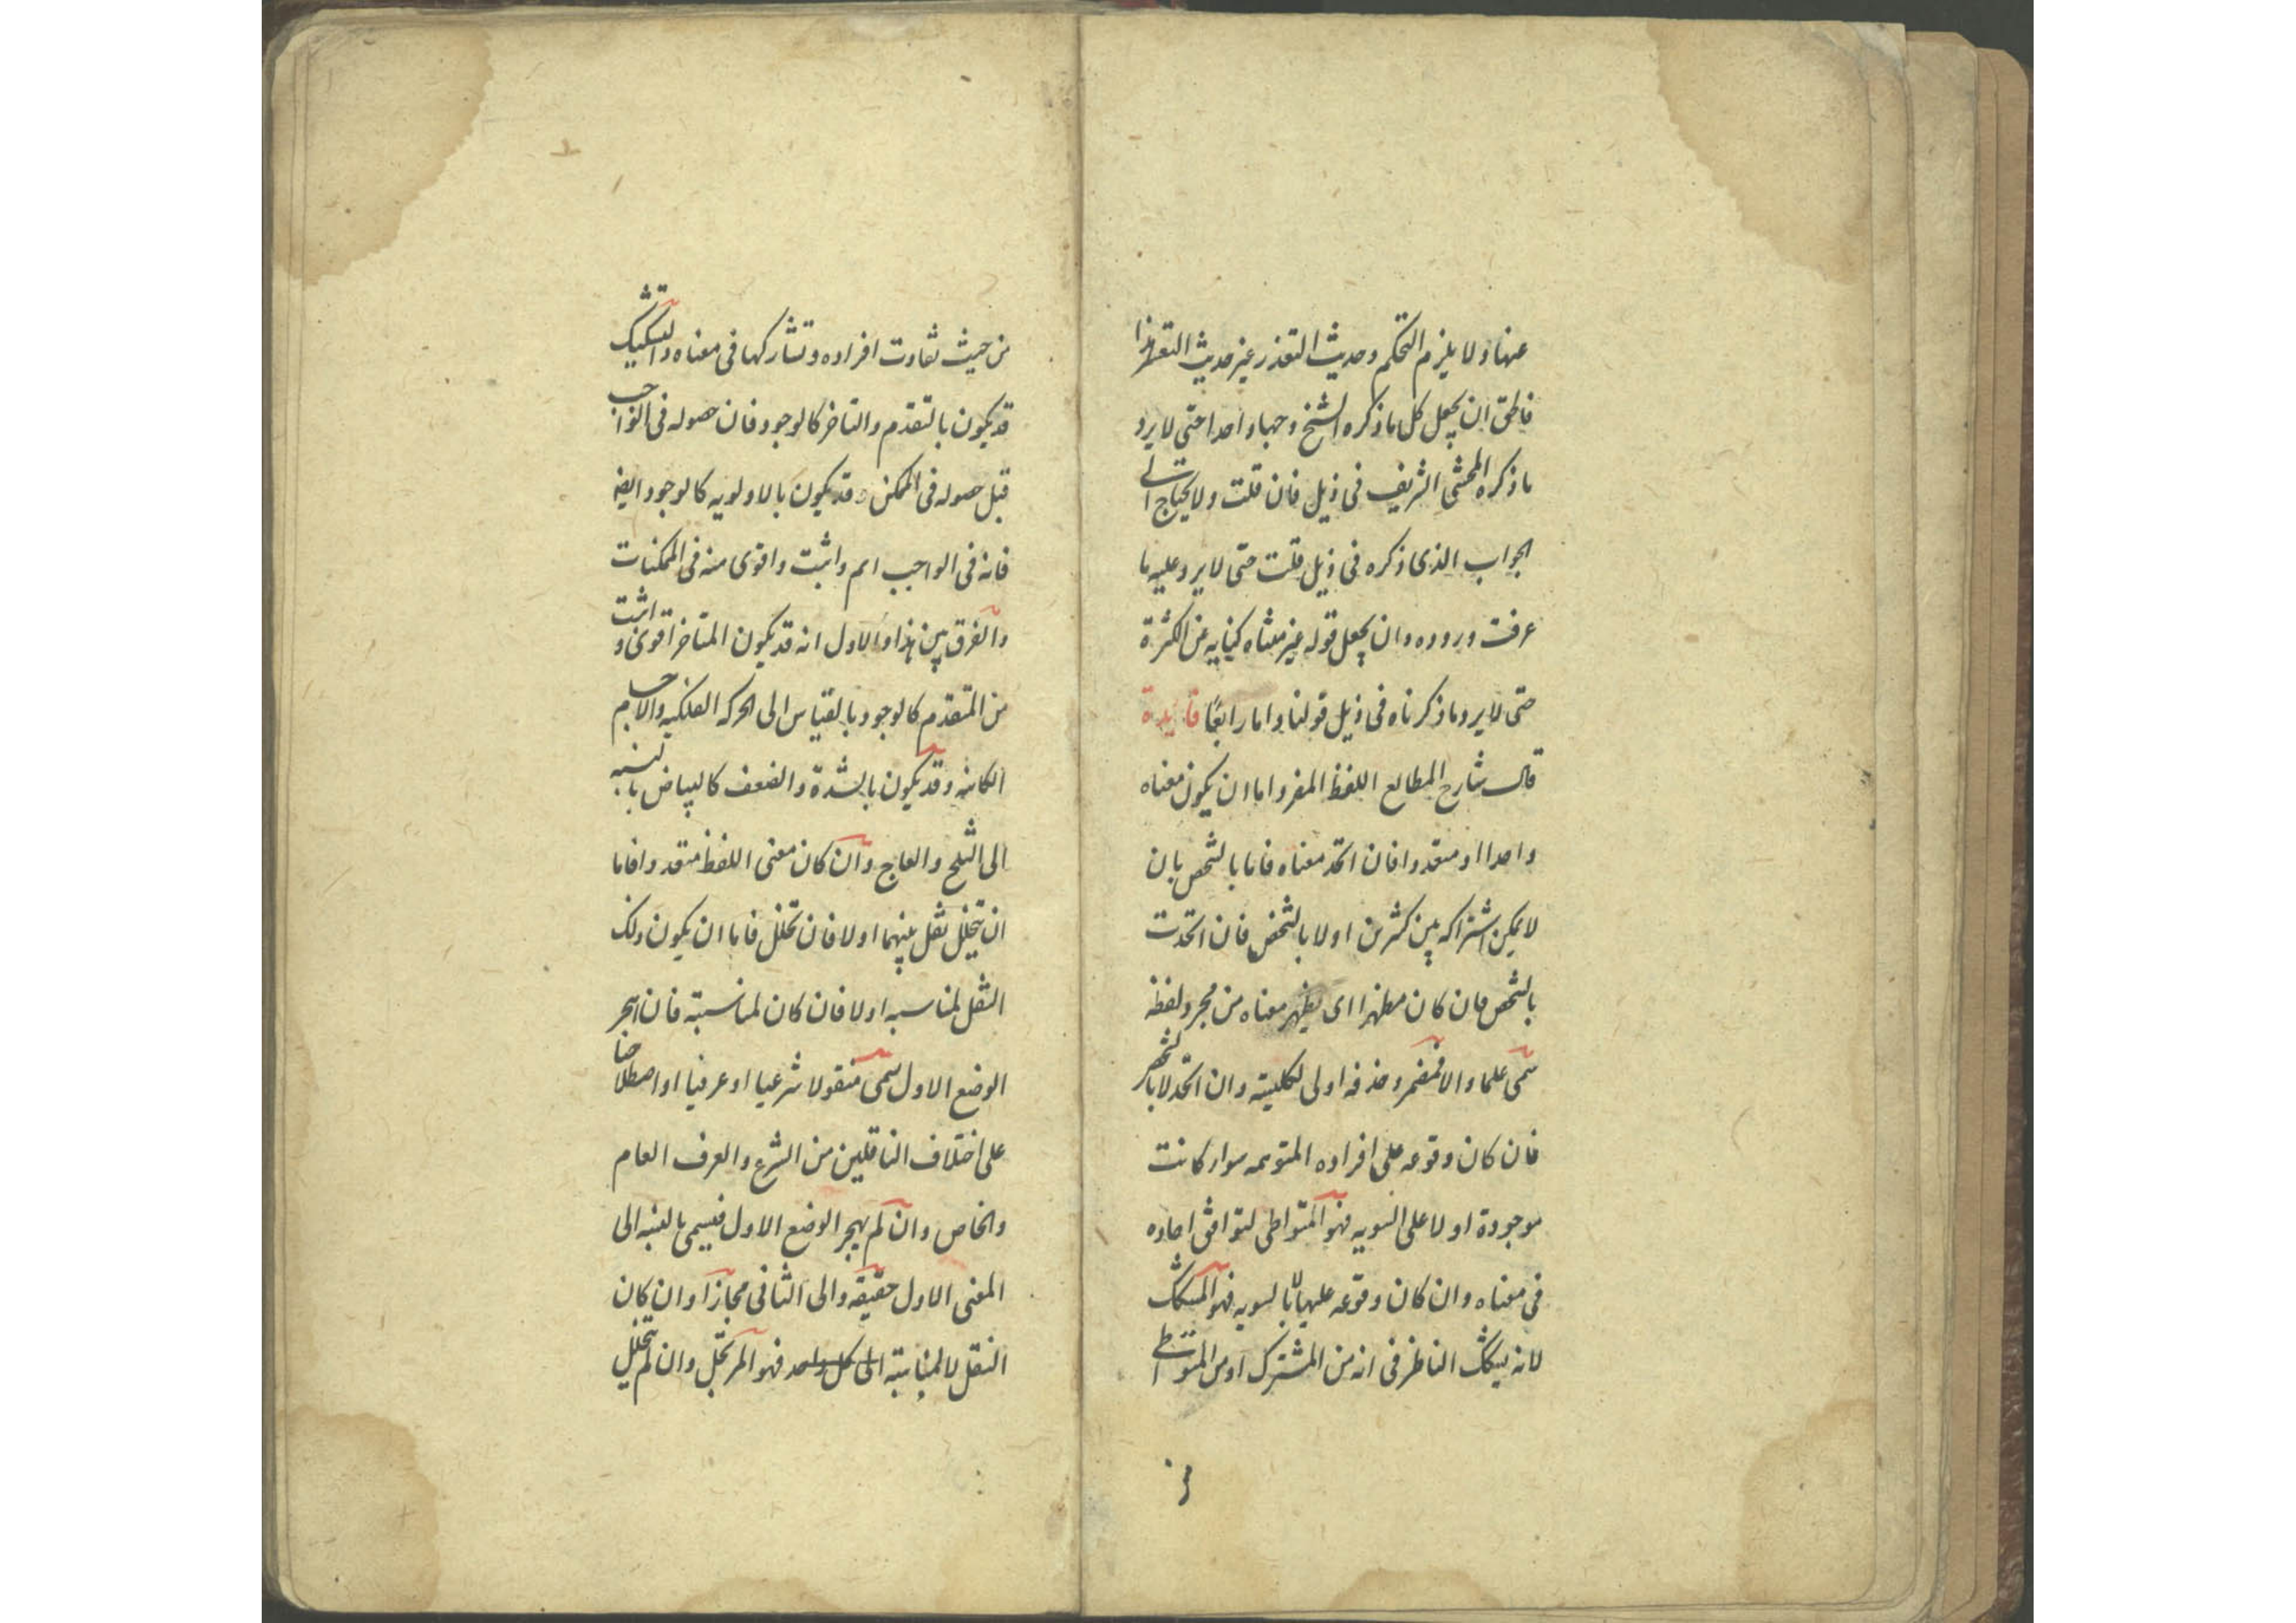 عنها ولا يلزم التحكم وحديث التعذر غير حديث التعهد اذا
فاطق ان يجعل كل ما ذكره الشيخ وجها واحدا حتى لا يرد
ما ذكره المحشى الشريف فى ذيل فان قلت ولا يحتاج الى
الجواب الذى ذكره فى ذيل قلت حتى لا يرد عليه ما
عرفت وروده وان يجعل قوله غير معناه كنايه عن الكثرة
حتى لا يرد ما ذكرناه فى ذيل قولنا واما رابعًا فايدة
قال شارح المطالع اللفظ المفرد اما ان يكون معناه
واحدا او متعددا فان اتحد معناه فاما بالشخص بان
لا يمكن اشتراكه بين كثيرين او لا بالشخص فان اتحدت
بالشخص فان كان مظهرا اى يظهر معناه من مجرد لفظه
سمى علما والا فمضمر وحذفه اولى لكليته وان اتحد لا بالشخص
فان كان وقوعه على افراده المتوهمه سواء كانت
موجودة او لا على السويه فهو المتواطى لتوافق احاده
فى معناه وان كان وقوعه عليها لا بالسويه فهو المشكك
لانه يشكك الناظر فى انه من المشترك او من المتواطى
من
من حيث تفاوت افراده وتشاركها فى معناه والتشكيك
قد يكون بالتقدم والتاخر كالوجود فان حصوله فى الواجب
قبل حصوله فى الممكن وقد يكون بالاولويه كالوجود ايضا
فانه فى الواجب اتم واثبت واقوى منه فى الممكنات
والفرق بين هذا والاول انه قد يكون المتاخر اقوى و اثبت
من المتقدم كالوجود بالقياس الى الحركه الفلكيه والاجسام
الكائنه وقد يكون بالشدة والضعف كالبياض بالنسبه
الى الثلج والعاج وان كان معنى اللفظ متعددا فاما
ان يتخلل نقل بينهما او لا فان تخلل فاما ان يكون ذلك
النقل لمناسبه او لا فان كان لمناسبة فان هجر
الوضع الاول سمى منقولا شرعيا او عرفيا او اصطلاحيا
على اختلاف الناقلين من الشرع والعرف العام
والخاص وان لم يهجر الوضع الاول فيسمى بالنسبه الى
المعنى الاول حقيقه والى الثانى مجازا وان كان
النقل لا لمناسبة الى كل واحد فهو المرتجل وان لم يتخلل